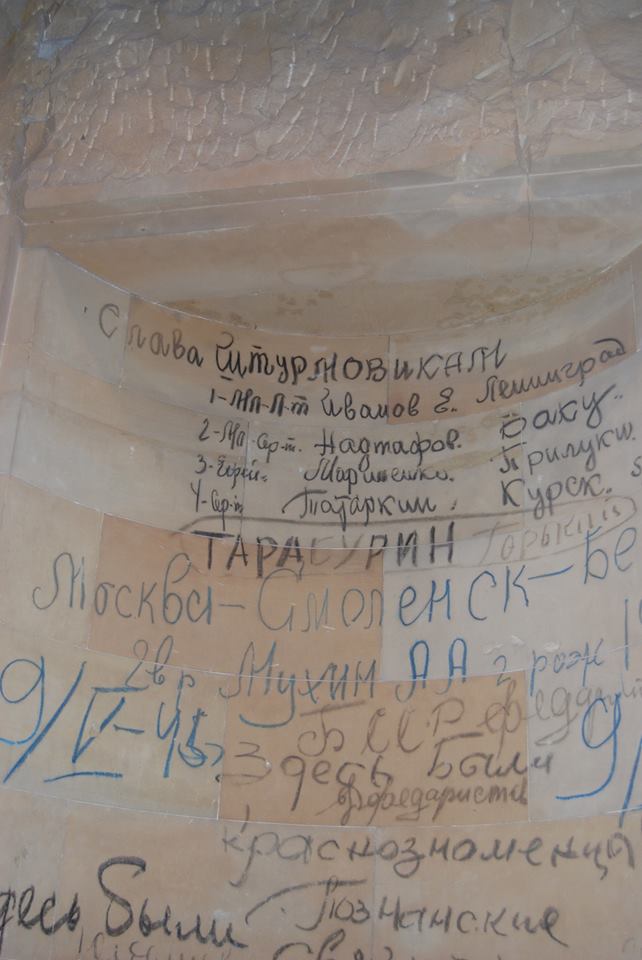 Слава Штурмовикам
1-Мл-Л-т Иванов Е. Ленинград
2-Мл-Сер-т. Надтафов. Баку.
3- Мариненко. Прилуки.
4-Сер-т Татаркин. Курск.
ТАРАБУРИН Горький
Москва-Смоленск-Бе
Мухин АА г рож
9/V-45г. 9/
БССР
Здесь Были
Краснознаменца
десь Были Познанские